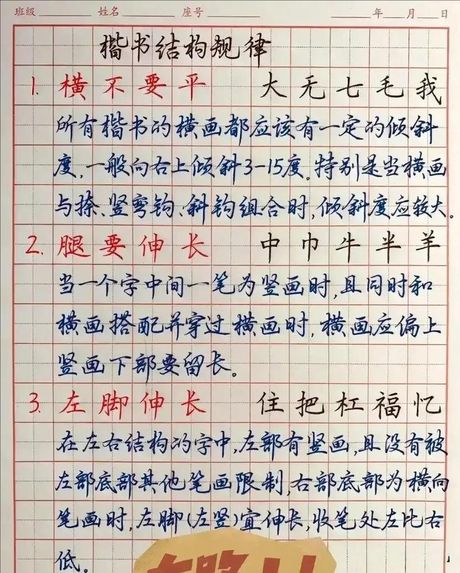 班级 姓名 座号 年 月 日
楷书结构规律
1. 横不要平 大无七毛我
所有楷书的横画都应该有一定的倾斜
度,一般向右上倾斜3-15度。特别是当横画
与捺、竖弯钩、斜钩组合时,倾斜度应较大。
2. 腿要伸长 中巾牛半羊
当一个字中间一笔为竖画时,且同时和
横画搭配并穿过横画时,横画应偏上
竖画下部要留长。
3. 左脚伸长 住把杠福忆
在左右结构的字中,左部有竖画,且没有被
左部底部其他笔画限制,右部底部为横向
笔画时,左脚(左竖)宜伸长,收笔处左比右
低。